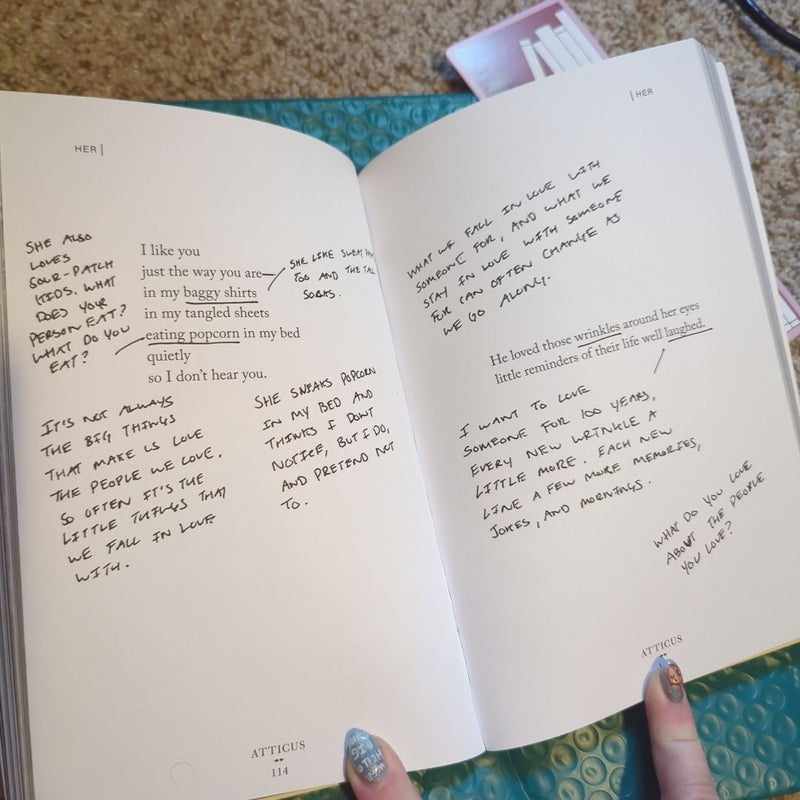 HER |
SHE ALSO
LOVES
SOUR-PATCH
KIDS. WHAT
DOES YOUR
PERSON EAT?
WHAT DO YOU
EAT?
I like you
just the way you are—
in my baggy shirts
in my tangled sheets
eating popcorn in my bed
quietly
so I don't hear you.
SHE LIKE SWEAT
TOO AND THE TALL
SOCKS.
IT'S NOT ALWAYS
THE BIG THINGS
THAT MAKE US LOVE
THE PEOPLE WE LOVE.
SO OFTEN IT'S THE
LITTLE THINGS THAT
WE FALL IN LOVE
WITH.
SHE SNEAKS POPCORN
IN MY BED AND
THINKS I DON'T
NOTICE, BUT I DO,
AND PRETEND NOT
TO.
ATTICUS
114
| HER
WHAT WE FALL IN LOVE WITH
SOMEONE FOR, AND WHAT WE
STAY IN LOVE WITH SOMEONE
FOR CAN OFTEN CHANGE AS
WE GO ALONG.
He loved those wrinkles around her eyes
little reminders of their life well laughed.
I WANT TO LOVE
SOMEONE FOR 100 YEARS,
EVERY NEW WRINKLE A
LITTLE MORE. EACH NEW
LINE A FEW MORE MEMORIES,
JOKES, AND MORNINGS.
WHAT DO YOU LOVE
ABOUT THE PEOPLE
YOU LOVE?
ATTICUS